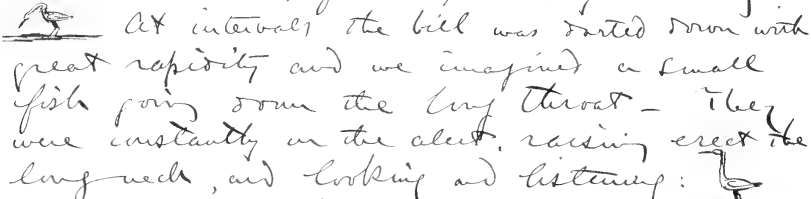 At intervals the bill was darted down with
great rapidity and we imagined a small
fish going down the long throat — They
were constantly on the alert, raising erect the
long neck, and looking and listening: